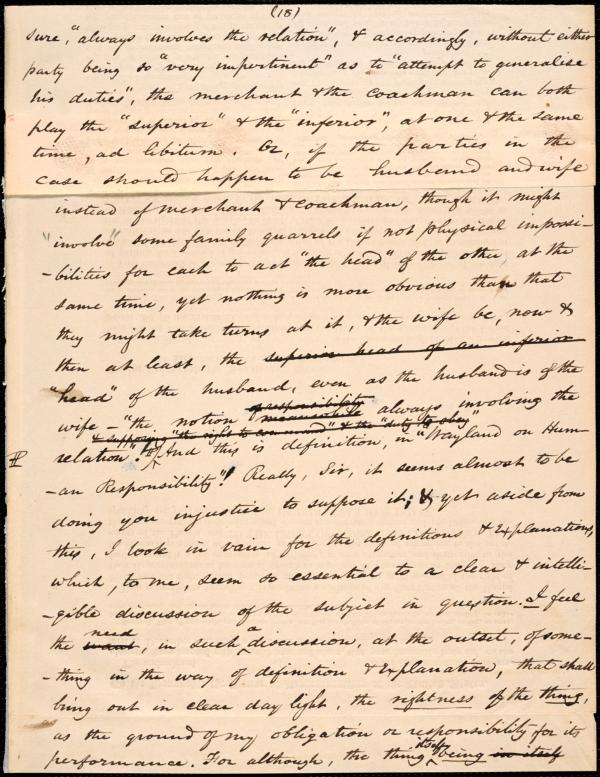 (18)
sure, "always involves the relation", & accordingly, without either
party being so "very impertinent" as to "attempt to generalise
his duties", the merchant & the coachman can both
play the "superior" & the "inferior", at one & the same
time, ad libitum. Or, if the parties in the
case should happen to be husband and wife
instead of merchant & coachman, though it might
"involve" some family quarrels if not physical impossi-
-bilities for each to act "the head" of the other at the
same time, yet nothing is more obvious than that
they might take turns at it, & the wife be, now &
then at least, the superior head of an inferior
"head" of the husband, even as the husband is of the
of responsibility
wife - "the notion " always involving the
& supposing "the right to command" & the "duty to obey"
relation"! And this is definition, in "Wayland on Hum-
-an Responsibility"! Really, Sir, it seems almost to be
doing you injustice to suppose it; & yet aside from
this, I look in vain for the definitions & Explanations,
which, to me, seem so essential to a clear & intelli-
-gible discussion of the subject in question. I feel
need
the want, in such a discussion, at the outset, of some-
-thing in the way of definition & Explanation, that shall
bring out in clear day light, the rightness of the thing,
as the ground of my obligation or responsibility for its
itself
performance. For although, the thing being in itself